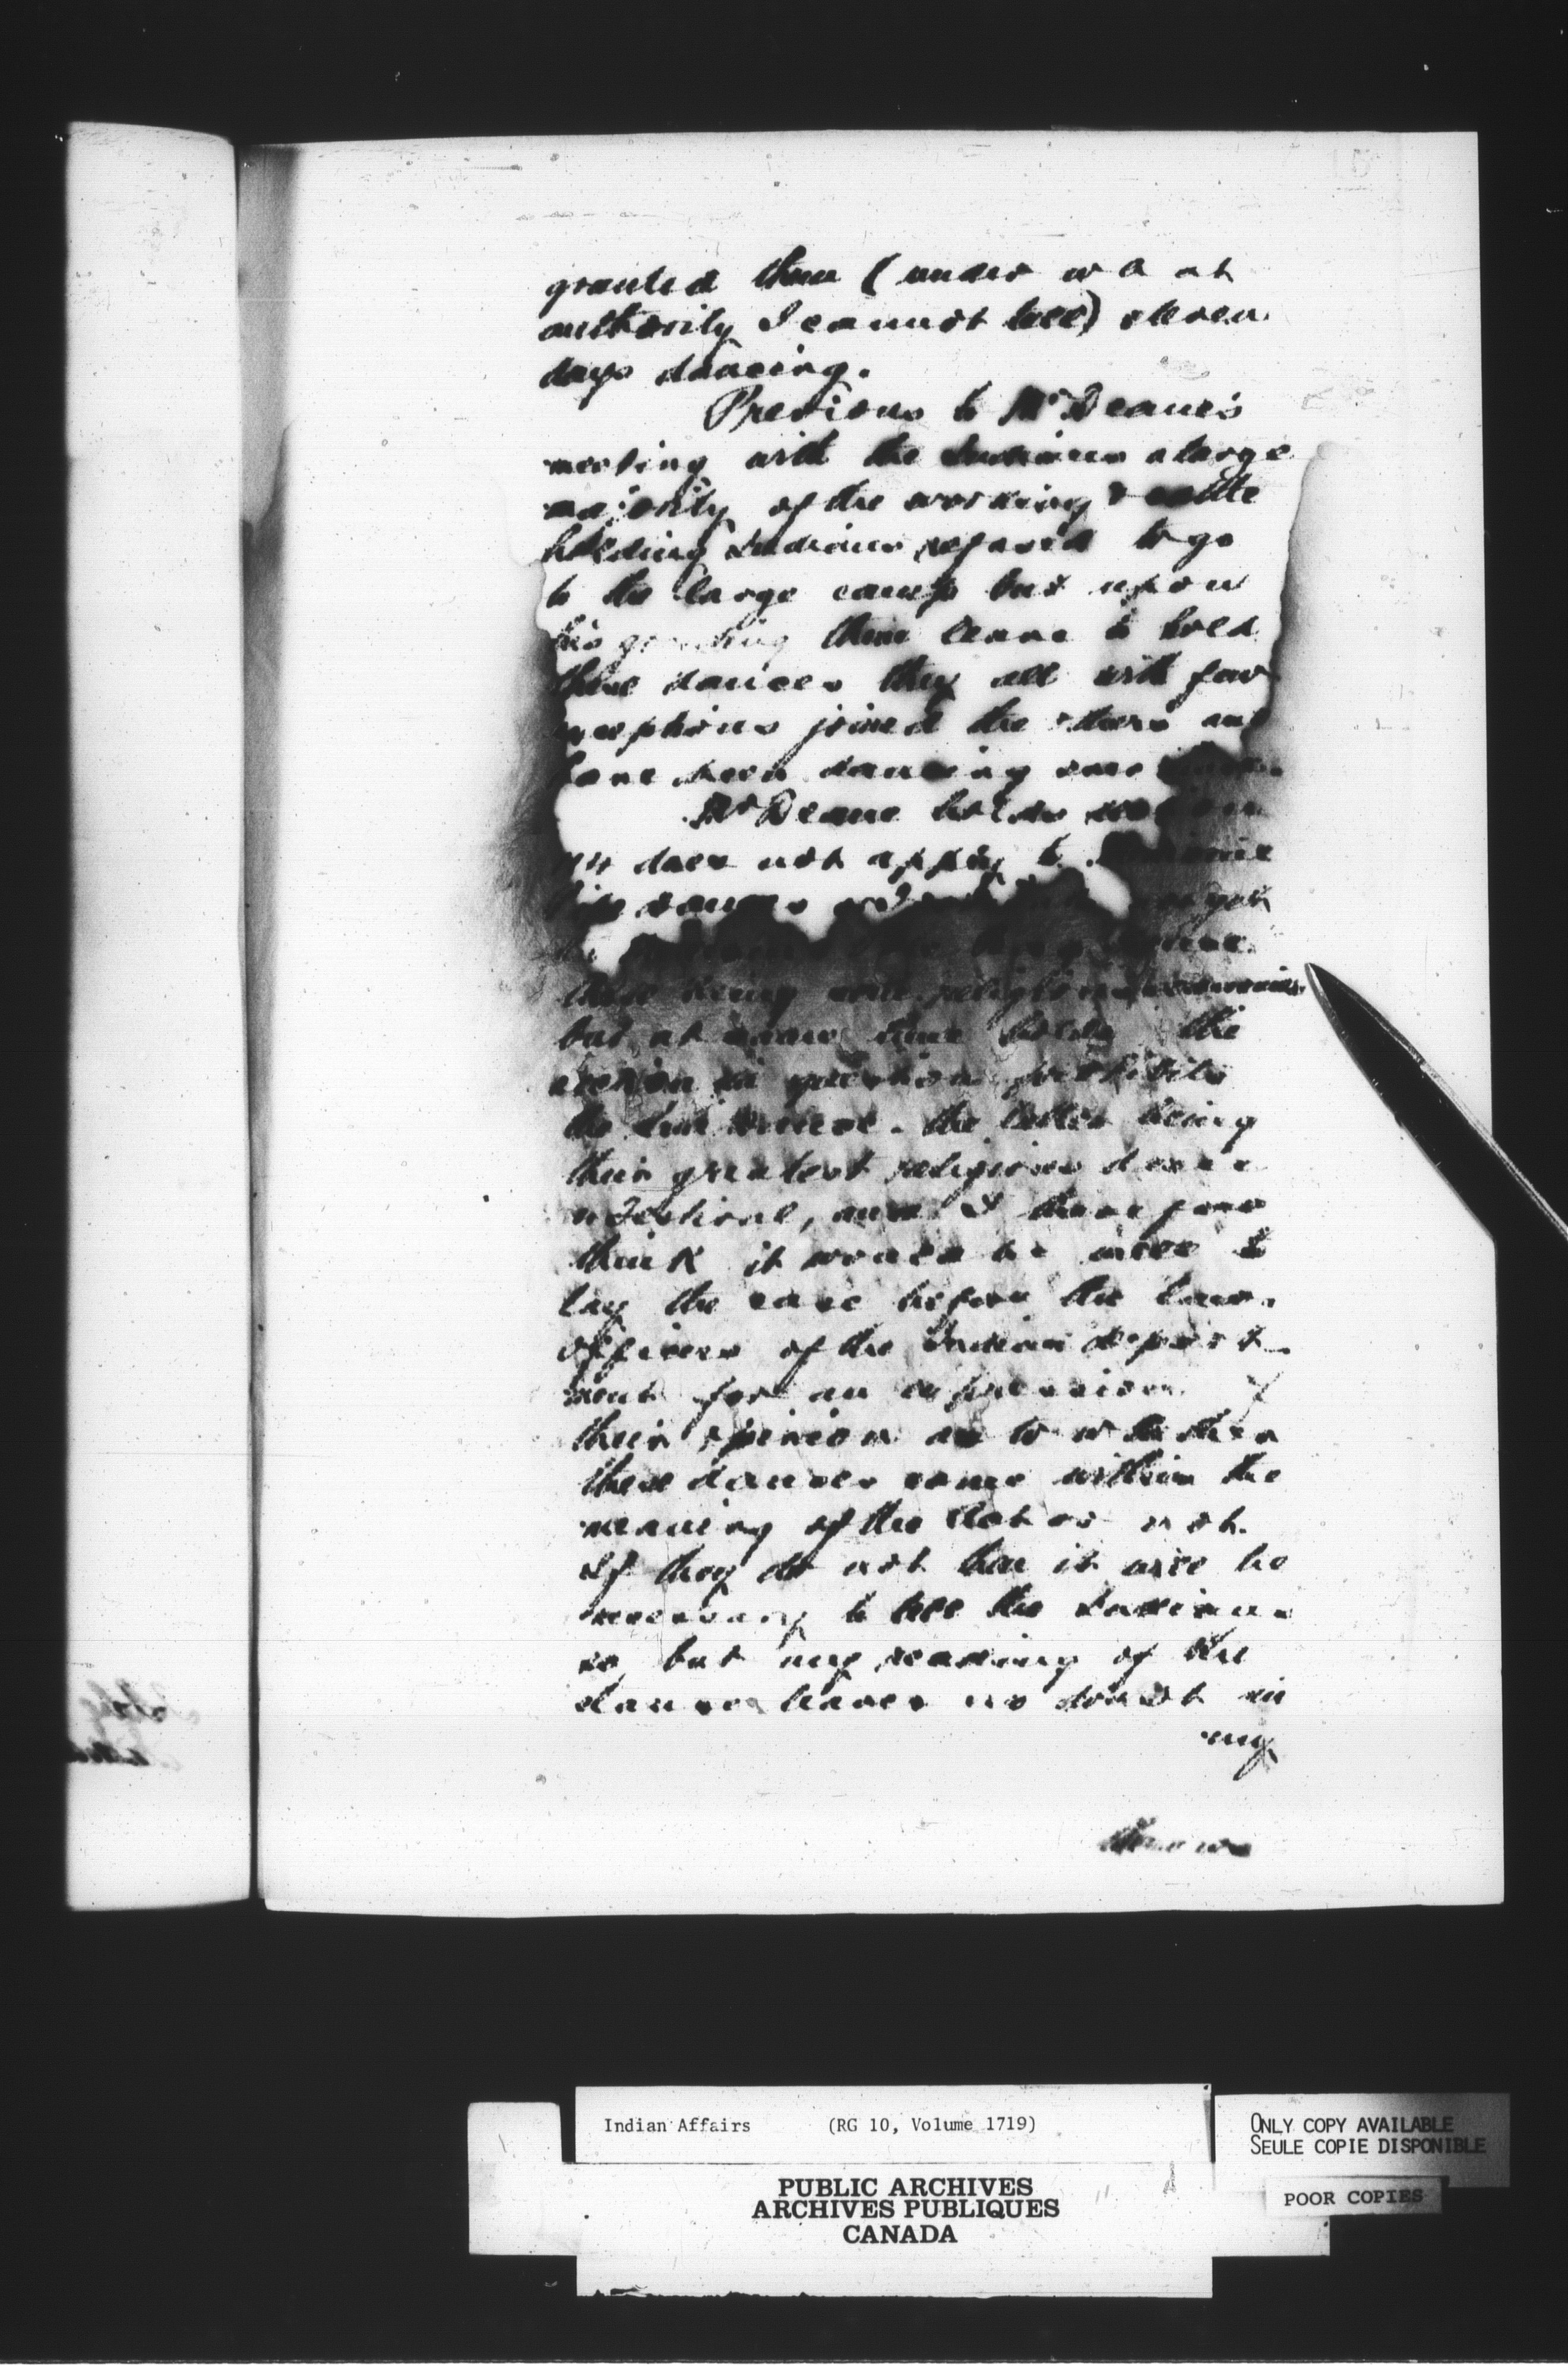 granted them (under what
authority I cannot tell) eleven
days dancing.
Previous to Mr Deane's
meeting with the Indians a large
majority of the working & cattle
holding Indians refused to go
to the large camp but upon
his granting them leave to hold
these dances they all with few
exceptions joined the others and
have been dancing ever
Mr Deane holds section
114 does not apply to
these being
but at same time holds the
section in question prohibits
the Sun Dance. the latter being
their greatest religious dance
or Festival, and I therefore
think it would be well to
lay the case before the law
officers of the Indian depart-
ment for an expression of
their opinion as to whether
these dances come within the
meaning of the Act or not.
If they do not then it will be
necessary to tell the Indians
so but my reading of the
clause leaves no doubt in
my
Indian Affairs (RG 10, Volume 1719)
PUBLIC ARCHIVES
ARCHIVES PUBLIQUES
CANADA
ONLY COPY AVAILABLE
SEULE COPIE DISPONIBLE
POOR COPIES